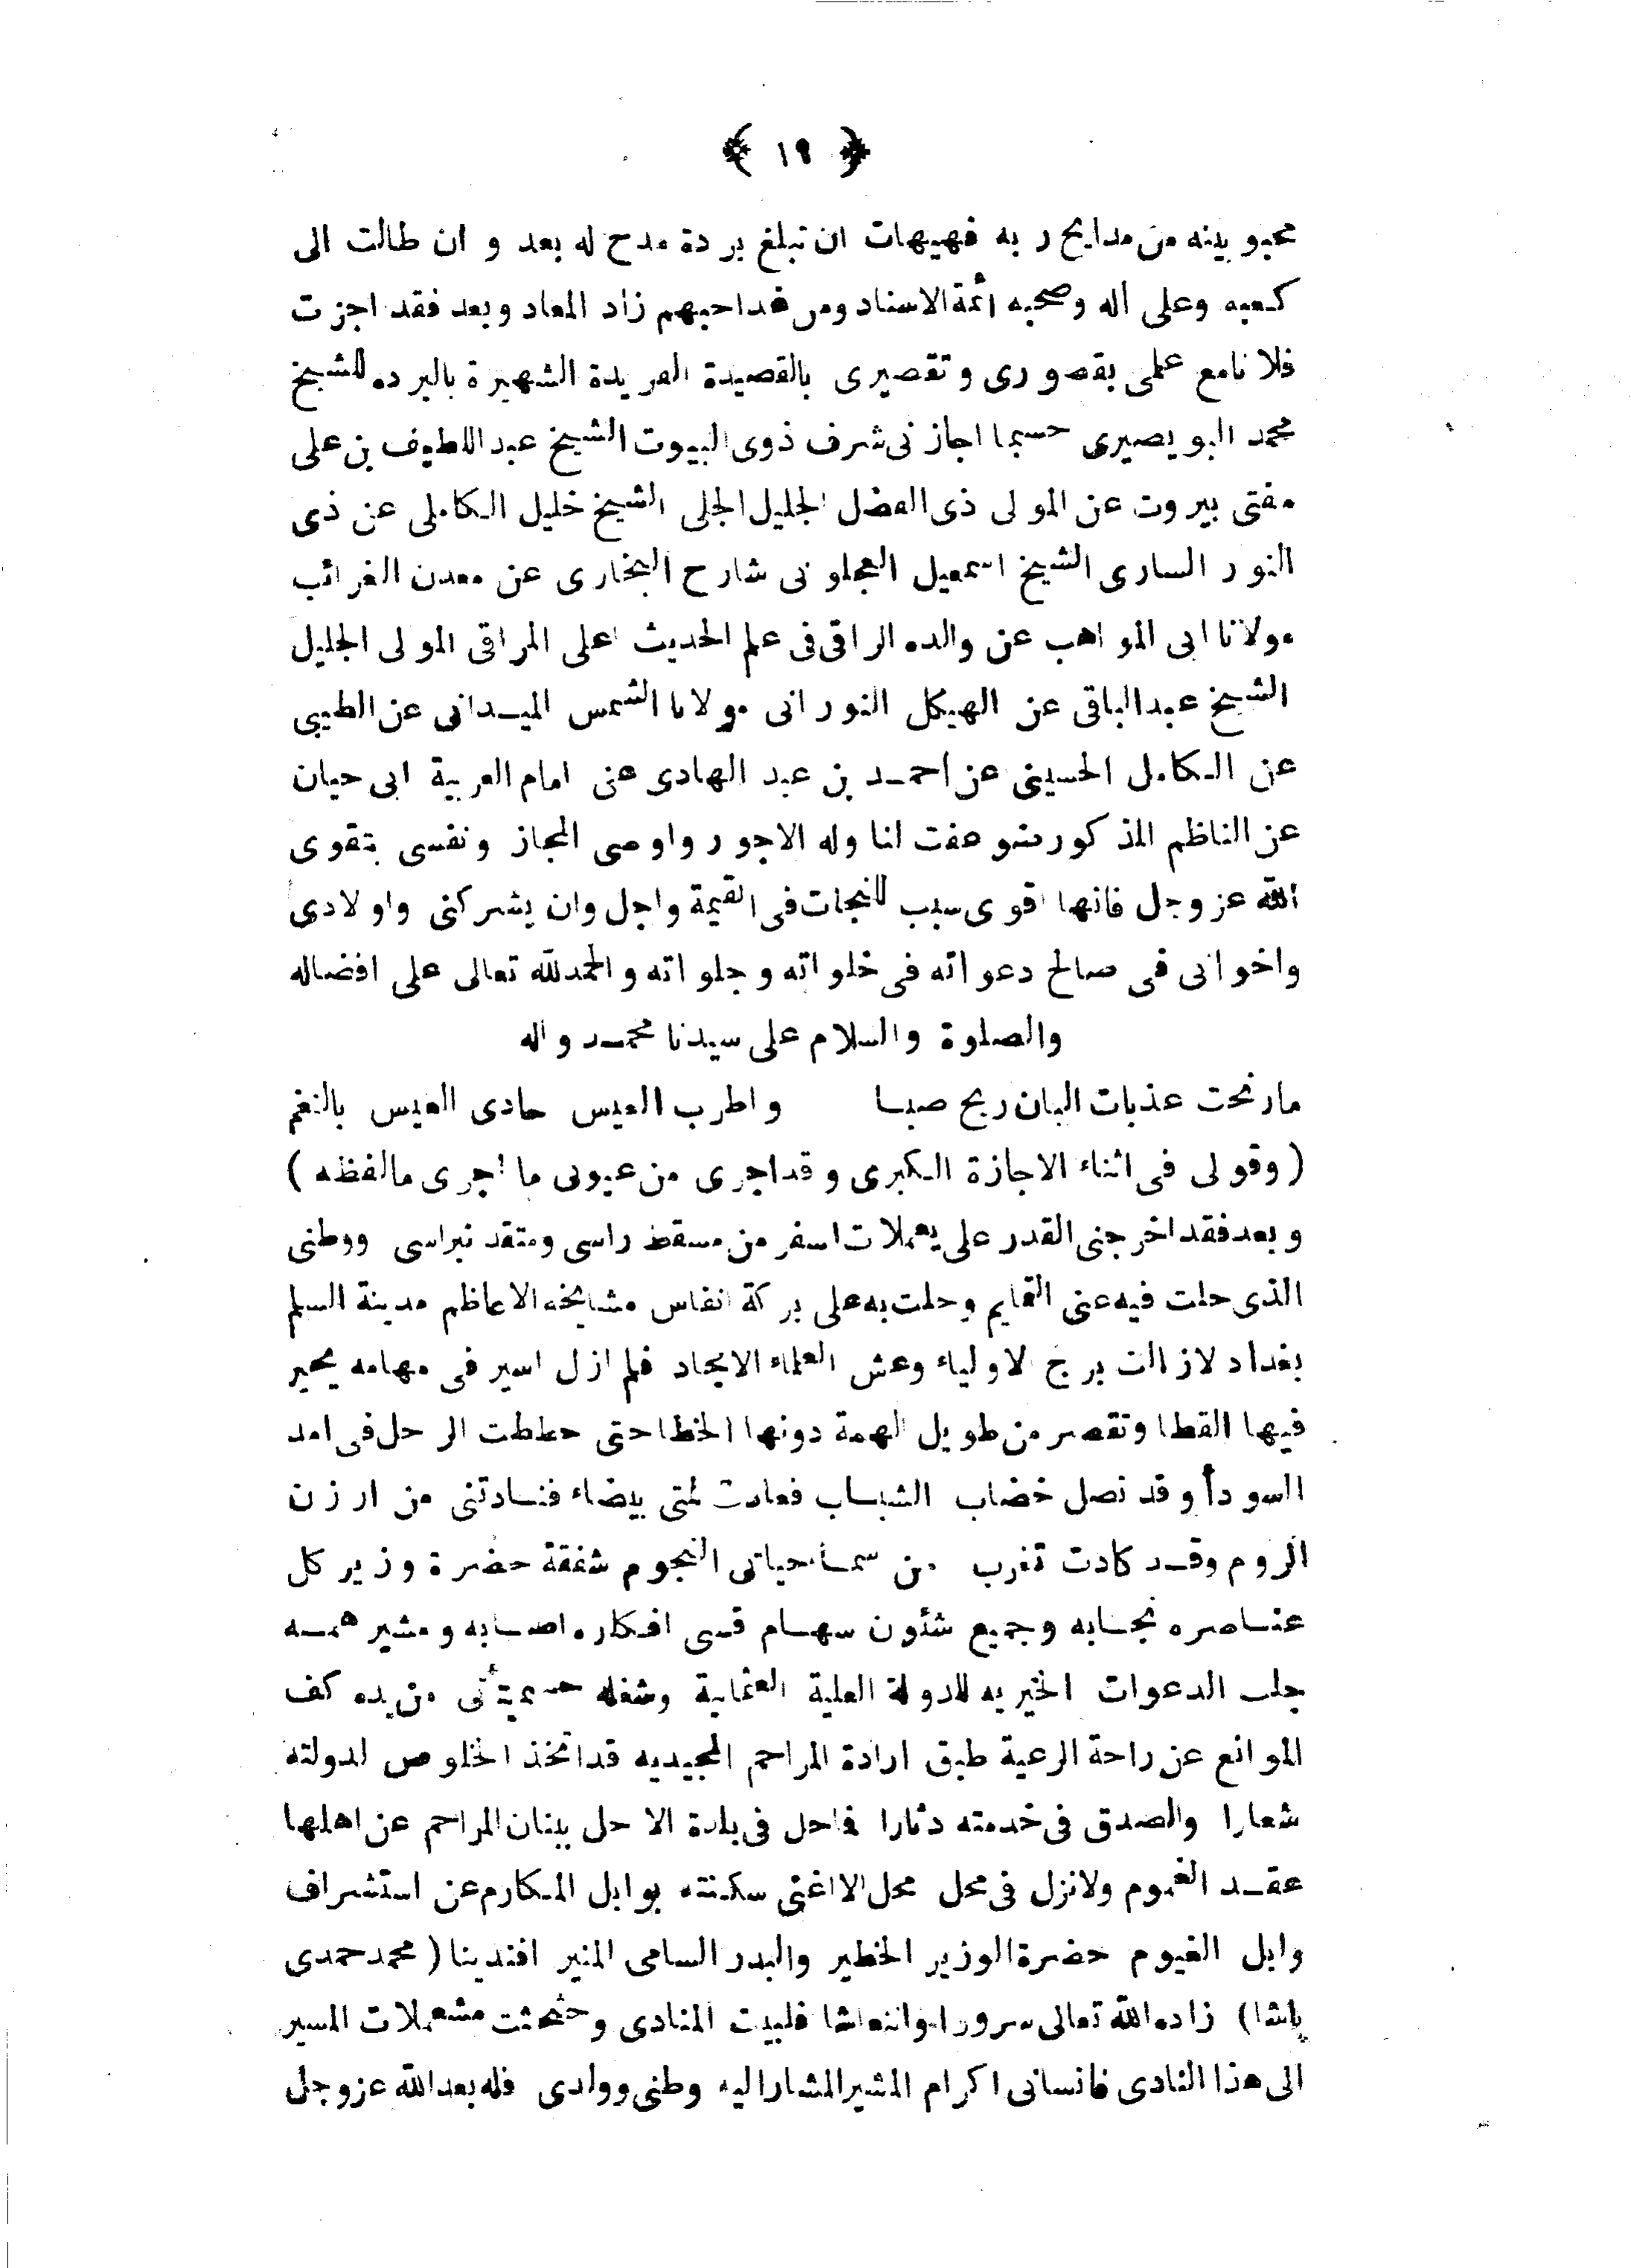 ﴿ ١٩ ﴾
محبوبيته من مدايح ربه فهيهات ان تبلغ بردة مدح له بعد وان طالت الى
كعبه وعلى اله وصحبه ائمة الاسناد ومن غدا حبهم زاد المعاد وبعد فقد اجزت
فلانا مع علمى بقصورى وتقصيرى بالقصيدة الفريدة الشهيرة بالبرده للشيخ
محمد البويصيرى حسبما اجازنى شرف ذوى البيوت الشيخ عبداللطيف بن على
مفتى بيروت عن المولى ذى الفضل الجليل الجلى الشيخ خليل الكاملى عن ذى
النور السارى الشيخ اسمعيل العجلونى شارح البخارى عن معدن الغرائب
مولانا ابى المواهب عن والده الراقى فى علم الحديث اعلى المراقى المولى الجليل
الشيخ عبدالباقى عن الهيكل النورانى مولانا الشمس الميدانى عن الطيبى
عن الكامل الحسينى عن احمد بن عبد الهادى عن امام العربية ابى حيان
عن الناظم المذكور ضوعفت لنا وله الاجور واوصى المجاز ونفسى بتقوى
الله عز وجل فانها اقوى سبب للنجات فى القيمة واجل وان يشركنى واولادى
واخوانى فى صالح دعواته فى خلواته وجلواته والحمدلله تعالى على افضاله
والصلوة والسلام على سيدنا محمد واله
مارنحت عذبات البان ريح صبا واطرب العيس حادى العيس بالنغم
( وقولى فى اثناء الاجازة الكبرى وقد اجرى من عيونى ما اجرى مالفظه )
وبعد فقد اخرجنى القدر على يعملات اسفر من مسقط راسى ومتقد نبراسى ووطنى
الذى حلت فيه عنى التمايم وحلت به على بركة انفاس مشايخه الاعاظم مدينة السلم
بغداد لازالت برج الاولياء وعش العلماء الامجاد فلم ازل اسير فى مهامه يحير
فيها القطا وتقصر من طويل الهمة دونها الخطا حتى حططت الرحل فى امد
السودأ وقد نصل خضاب الشباب فعادت لمتى بيضاء فنادتنى من ارزن
الروم وقد كادت تغرب من سماء حياتى النجوم شفقة حضرة وزير كل
عناصره نجابه وجميع شئون سهام قسى افكاره اصابه ومشير همه
جلب الدعوات الخيريه للدولة العلية العثمانية وشغله حسبما يتأتى من يده كف
الموانع عن راحة الرعية طبق ارادة المراحم المجيديه قد اتخذ الخلوص لدولته
شعارا والصدق فى خدمته دثارا فما حل فى بلدة الا حل ببنان المراحم عن اهلها
عقد الغموم ولانزل فى محل محل الا اغنى سكنته بوابل المكارم عن استشراف
وابل الغيوم حضرة الوزير الخطير والبدر السامى المنير افندينا ( محمد حمدى
باشا ) زاده الله تعالى سرورا وانتعاشا فلبيت المنادى وحثحثت مشمعلات المسير
الى هذا النادى فانسانى اكرام المشير المشار اليه وطنى وولدى فله بعد الله عز وجل